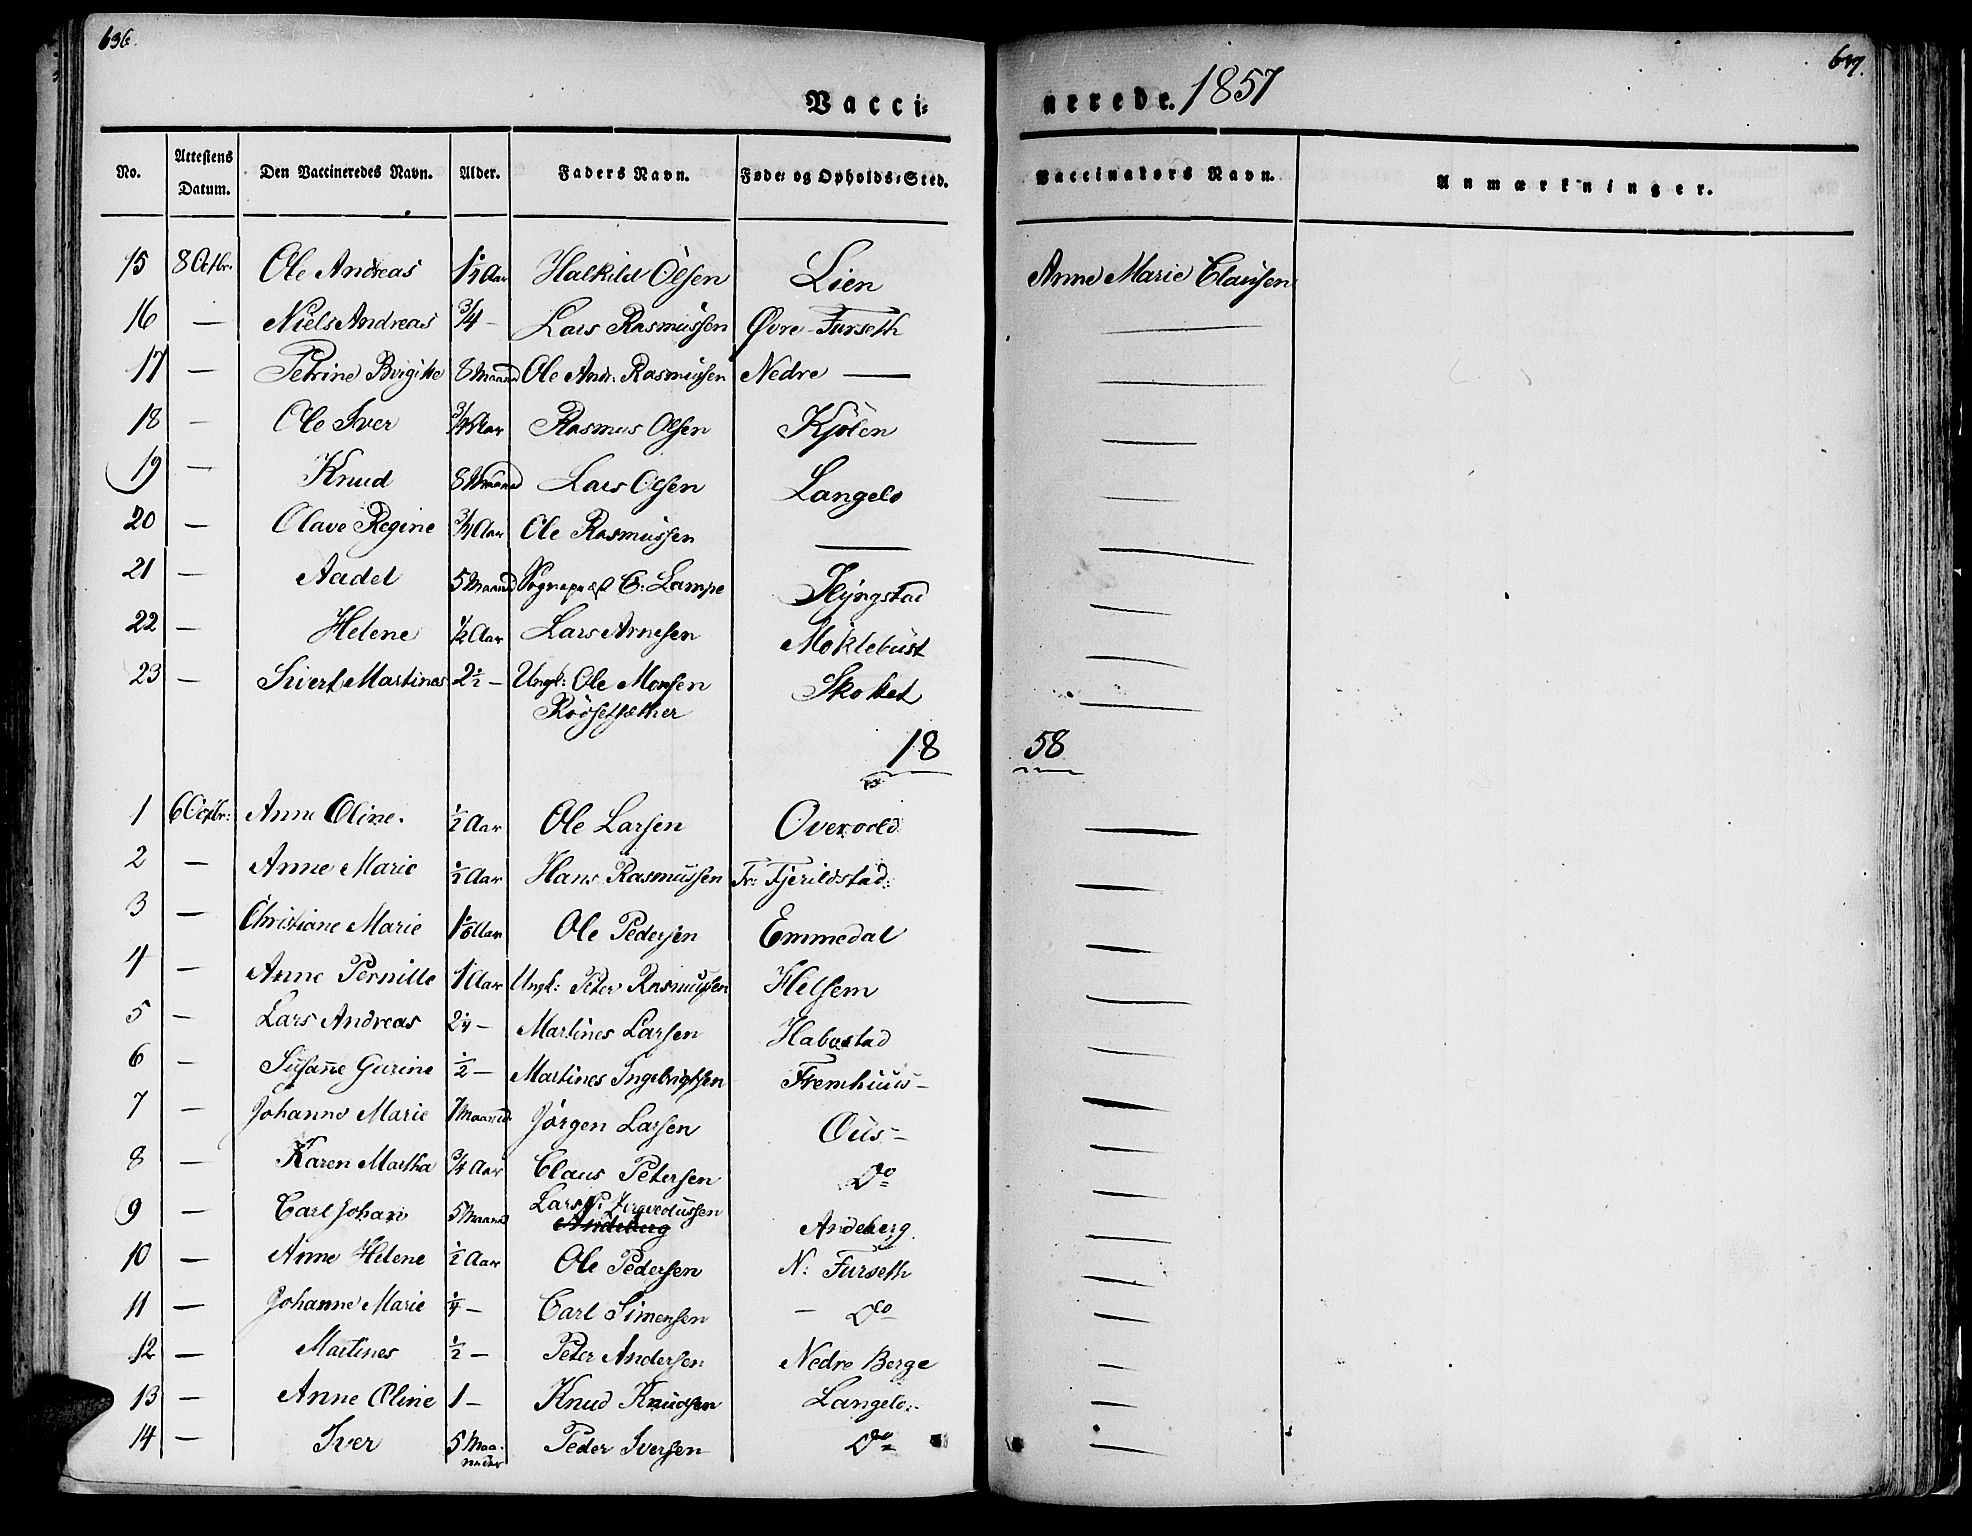 636.
Vacci-
No. Attestens Datum. Den Vaccineredes Navn. Alder. Faders Navn. Føde- og Opholds-Sted.
15 8 Octbr. Ole Andreas 1 1/2 Aar Halkild Olsen Lien
16 — Niels Andreas 3/4 - Lars Rasmussen Øvre Furseth
17 — Petrine Birgitte 8 Maaned Ole Andr: Rasmussen Nedre —
18 — Ole Iver 3/4 Aar Rasmus Olsen Kjölen
19 — Knud 8 Maaned Lars Olsen Langelo
20 — Olave Regine 3/4 Aar Ole Rasmussen —
21 — Aadel 5 Maaned Sognepræst C: Lampe
22 — Helene 1/2 Aar Lars Arnesen Moklebust
23 — Sivert Martines 2 1/2 — Ungk: Ole Monsen Skotket
Rödsetsæther
18
1 6 Octbr: Anne Oline. 1/2 Aar Ole Larsen Overvold
2 — Anne Marie 1/2 Aar Hans Rasmussen Fr: Fjerildstad:
3 — Christiane Marie 1 1/8 Aar Ole Pedersen Emmedal
4 — Anne Pernille 1 Aar Ungk: Peter Rasmussen Helsem
5 — Lars Andreas 2 1/4 — Martines Larsen Habostad
6 — Susanne Gurine 1/2 — Martines Ingebrigtsen Fremhuus-
7 — Johanne Marie 7 Maaned. Jørgen Larsen Ous-
8 — Karen Martha 3/4 Aar Claus Petersen Do
9 — Carl Johan 5 Maaned Lars P: Andeberg Andeberg.
10 — Anne Helene 1/2 Aar Ole Pedersen N: Furseth
11 — Johanne Marie 1/4 — Carl Simensen — Do
12 — Martines 1/2 — Peter Andersen Nedre Berge
13 — Anne Oline 1 — Knud Knudsen Langelo:
14 — Iver 5 Maaneder Peder Iversen Do
637.
nerede. 1857
Vaccinators Navn. Anmærkninger.
Anne Marie Clausen
58